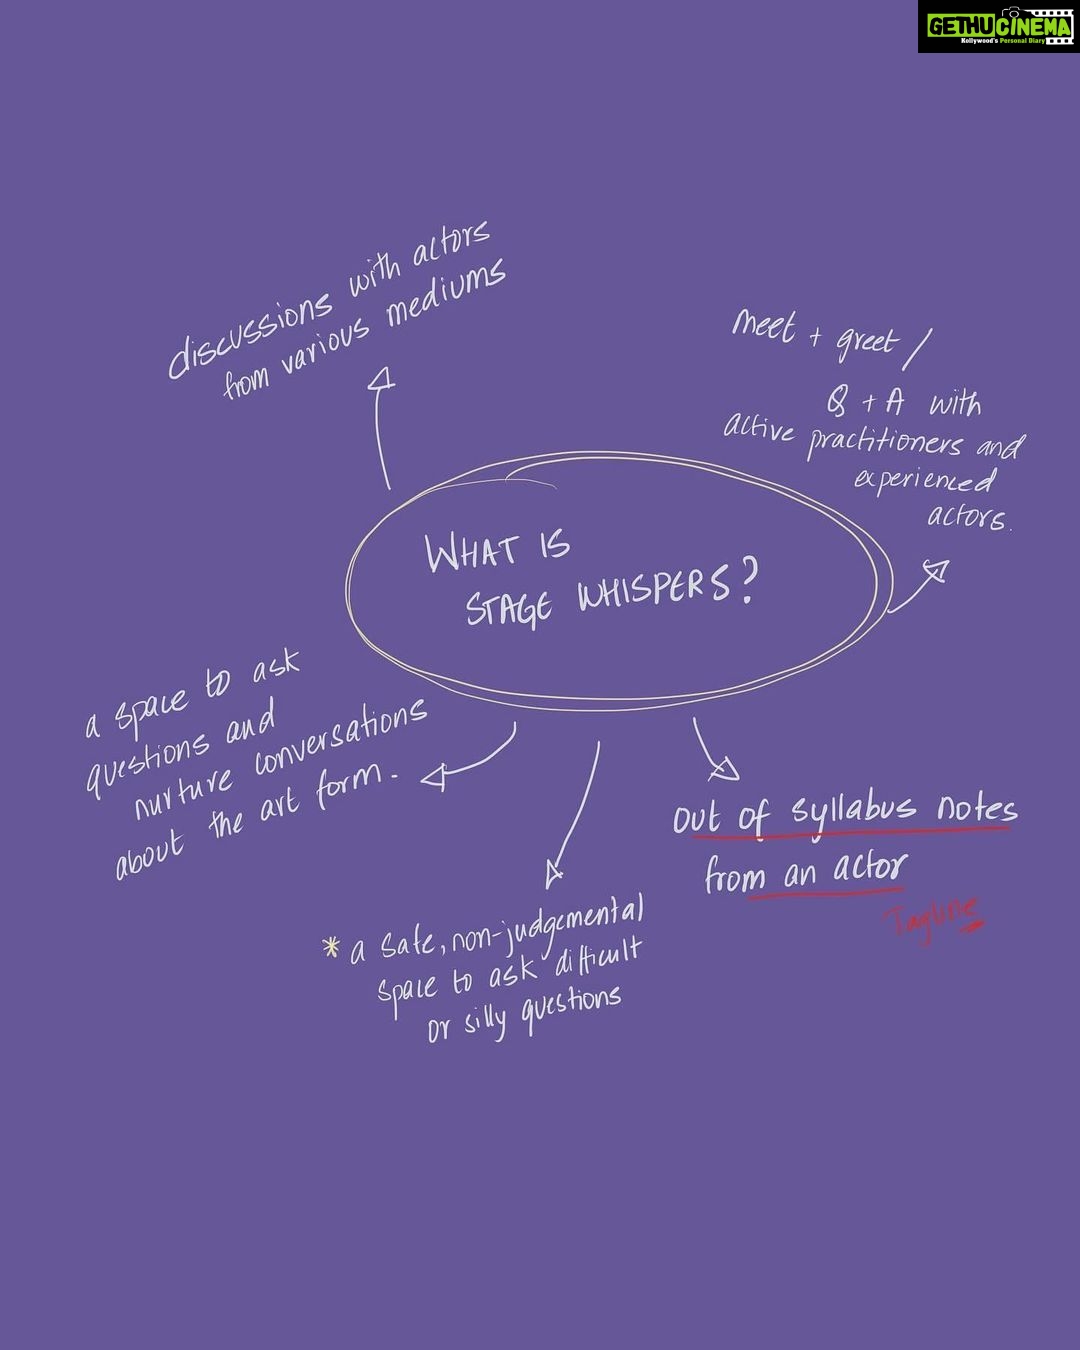 GETHUCINEMA
Kollywood's Personal Diary
discussions with actors
from various mediums
meet + greet /
Q + A with
active practitioners and
experienced
actors.
WHAT IS
STAGE WHISPERS?
a space to ask
questions and
nurture conversations
about the art form.
out of syllabus notes
from an actor
Tagline
* a safe, non-judgemental
space to ask difficult
or silly questions